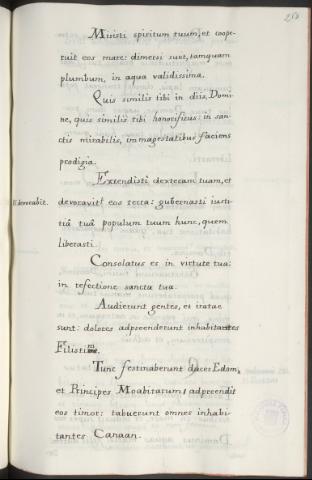 Misisti spiritum tuum, et coope-
ruit eos mare: dimersi sunt, tamquam
plumbum, in aqua validissima.
Quis similis tibi in diis, Domi-
ne, quis similis tibi honorificus: in san-
ctis mirabilis, in magestatibus faciens
prodigia.
Extendisti dexteram tuam, et
devoravit eos terra: gubernasti iusti-
tiâ tuâ populum tuum hunc, quem
liberasti.
Consolatus es in virtute tua:
in refectione sancta tua.
Audierunt gentes, et iratae
sunt: dolores adpreenderunt inhabitantes
Filistiim.
Tunc festinaberunt duces Edom,
et Principes Moabitarum; adpreendit
eos timor: tabuerunt omnes inhabi-
tantes Canaan.